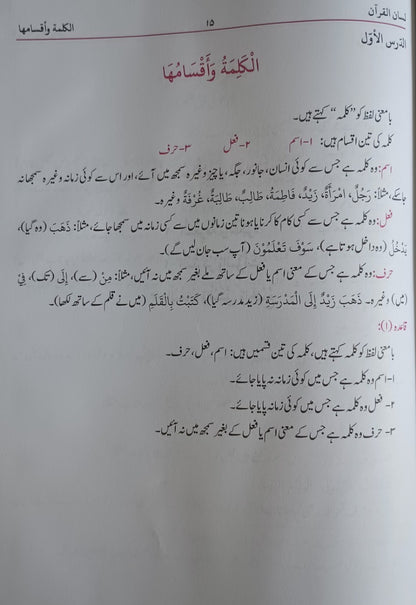 لسان القرآن ۱۵ الكلمة وأقسامها
الدرس الأوّل
الْكَلِمَةُ وَأَقْسَامُهَا
بامعنی لفظ کو ”کلمہ“ کہتے ہیں۔
کلمہ کی تین اقسام ہیں: ۱-اسم ۲-فعل ۳-حرف
اسم: وہ کلمہ ہے جس سے کوئی انسان، جانور، جگہ، یا چیز وغیرہ سمجھ میں آئے، اور اس سے کوئی زمانہ وغیرہ سمجھا نہ
جاسکے، مثلاً: رَجُلٌ، امْرَأَةٌ، زَيْدٌ، فَاطِمَةُ، طَالِبٌ، طَالِبَةٌ، غُرْفَةٌ وغیرہ۔
فعل: وہ کلمہ ہے جس سے کسی کام کا کرنا یا ہونا تین زمانوں میں سے کسی زمانہ میں سمجھا جائے، مثلاً: ذَهَبَ (وہ گیا)،
يَدْخُلُ (وہ داخل ہوتا ہے)، سَوْفَ تَعْلَمُوْنَ (آپ سب جان لیں گے)۔
حرف: وہ کلمہ ہے جس کے معنی اسم یا فعل کے ساتھ ملے بغیر سمجھ میں نہ آئیں، مثلاً: مِنْ (سے)، إِلَى (تک)، فِيْ
(میں) وغیرہ۔ ذَهَبَ زَيْدٌ إِلَى الْمَدْرَسَةِ (زید مدرسہ گیا)، كَتَبْتُ بِالْقَلَمِ (میں نے قلم کے ساتھ لکھا)۔
قاعدہ (۱):
بامعنی لفظ کو کلمہ کہتے ہیں، کلمہ کی تین قسمیں ہیں: اسم، فعل، حرف۔
۱- اسم وہ کلمہ ہے جس میں کوئی زمانہ نہ پایا جائے۔
۲- فعل وہ کلمہ ہے جس میں کوئی زمانہ پایا جائے۔
۳- حرف وہ کلمہ ہے جس کے معنی اسم یا فعل کے بغیر سمجھ میں نہ آئیں۔